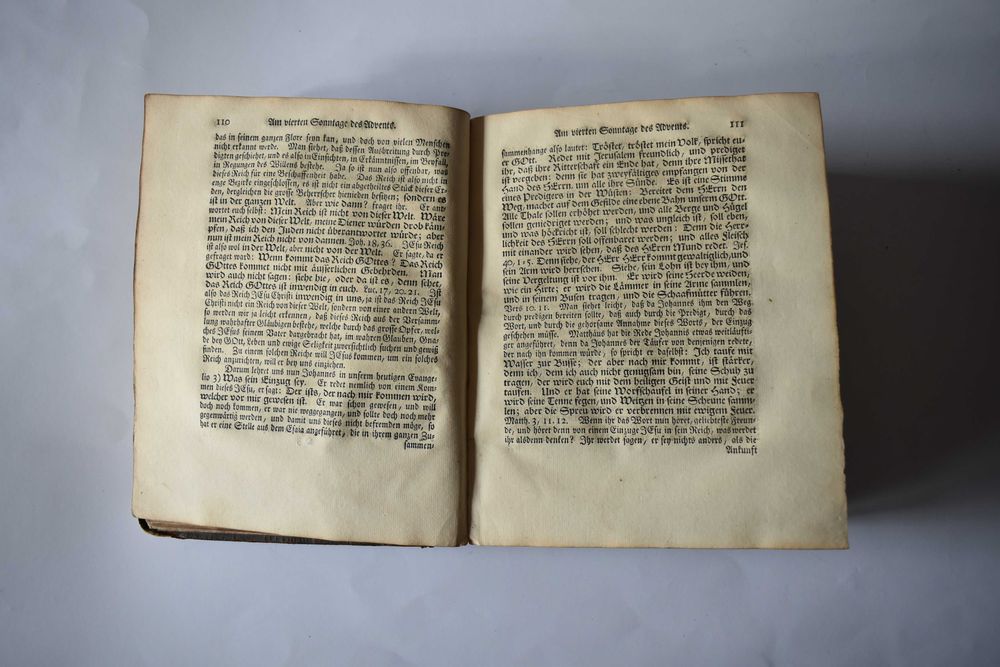 110 Am vierten Sonntage des Advents.
das in seinem ganzen Flore seyn kan, und doch von vielen Menschen
nicht erkannt werde. Man siehet, daß dessen Ausbreitung durch Pre-
digten geschiehet, und es also in Einsichten, in Erkäntnissen, im Beyfall,
in Regungen des Willens bestehe. Ja so ist nun also offenbar, was
dieses Reich für eine Beschaffenheit habe. Das Reich ist also nicht in
enge Bezirke eingeschlossen, es ist nicht ein abgetheiltes Stück dieser Er-
den, dergleichen die grosse Beherrscher hienieden besitzen; sondern es
ist in der ganzen Welt. Aber wie dann? fraget ihr. Er ant-
wortet euch selbst: Mein Reich ist nicht von dieser Welt. Wäre
mein Reich von dieser Welt, meine Diener würden drob käm-
pfen, daß ich den Juden nicht überantwortet würde; aber
nun ist mein Reich nicht von dannen. Joh. 18, 36. JEsu Reich
ist also wol in der Welt, aber nicht von der Welt. Er sagte, da er
gefraget ward: Wenn kommt das Reich GOttes? Das Reich
GOttes kommet nicht mit äusserlichen Gebehrden. Man
wird auch nicht sagen: siehe hie, oder da ist es, denn sehet,
das Reich GOttes ist inwendig in euch. Luc. 17, 20. 21. Ist
also das Reich JEsu Christi inwendig in uns, ja ist das Reich JEsu
Christi nicht ein Reich von dieser Welt, sondern von einer andern Welt,
so werden wir ja leicht erkennen, daß dieses Reich aus der Versamm-
lung wahrhafter Gläubigen bestehe, welche durch das grosse Opfer, wel-
ches JEsus seinem Vater dargebracht hat, im wahren Glauben, Gna-
de bey GOtt, Leben und ewige Seligkeit zuversichtlich suchen und gewiß
finden. Zu einem solchen Reiche will JEsus kommen, um ein solches
Reich anzurichten, will er bey uns einziehen.
Darum lehret uns nun Johannes in unserm heutigen Evange-
lio 3) Was sein Einzug sey. Er redet nemlich von einem Kom-
men dieses JEsu, er saget: Der ists, der nach mir kommen wird,
welcher vor mir gewesen ist. Er war schon gewesen, und will
doch noch kommen, er war nie weggegangen, und sollte doch noch mehr
gegenwärtig werden, und damit uns dieses nicht befremden möge, so
hat er eine Stelle aus dem Esaia angeführet, die in ihrem ganzen Zu-
sammen-
Am vierten Sonntage des Advents. 111
sammenhange also lautet: Tröstet, tröstet mein Volk, spricht eu-
er GOtt. Redet mit Jerusalem freundlich, und prediget
ihr, daß ihre Ritterschaft ein Ende hat, denn ihre Missethat
ist vergeben: denn sie hat zweyfältiges empfangen von der
Hand des HErrn, um alle ihre Sünde. Es ist eine Stimme
eines Predigers in der Wüsten: Bereitet dem HErrn den
Weg, machet auf dem Gefilde eine ebene Bahn unserm GOtt.
Alle Thale sollen erhöhet werden, und alle Berge und Hügel
sollen geniedriget werden; und was ungleich ist, soll eben,
und was höckricht ist, soll schlecht werden: Denn die Herr-
lichkeit des HErrn soll offenbaret werden; und alles Fleisch
mit einander wird sehen, daß des HErrn Mund redet. Jes.
40, 1-5. Denn siehe, der HErr HErr kommt gewaltiglich, und
sein Arm wird herrschen. Siehe, sein Lohn ist bey ihm, und
seine Vergeltung ist vor ihm. Er wird seine Heerde weiden,
wie ein Hirte; er wird die Lämmer in seine Arme sammlen,
und in seinem Busen tragen, und die Schaafmütter führen,
Vers 10. 11. Man siehet leicht, daß da Johannes ihm den Weg
durch predigen bereiten sollte, daß auch durch die Predigt, durch das
Wort, und durch die gehorsame Annahme dieses Worts, der Einzug
geschehen müsse. Matthäus hat die Rede Johannis etwas weitläufti-
ger angeführet, denn da Johannes der Täufer von demjenigen redete,
der nach ihm kommen würde, so spricht er daselbst: Ich taufe mit
Wasser zur Busse; der aber nach mir kommt, ist stärker,
denn ich, dem ich auch nicht genugsam bin, seine Schuh zu
tragen, der wird euch mit dem heiligen Geist und mit Feuer
taufen. Und er hat seine Worfschaufel in seiner Hand; er
wird seine Tenne fegen, und Weitzen in seine Scheune samm-
len; aber die Spreu wird er verbrennen mit ewigem Feuer.
Matth. 3, 11. 12. Wenn ihr das Wort nun höret, geliebteste Freun-
de, und höret denn von einem Einzuge JEsu in sein Reich, was werdet
ihr alsdenn denken? Ihr werdet sagen, er sey nichts anders, als die
Ankunft